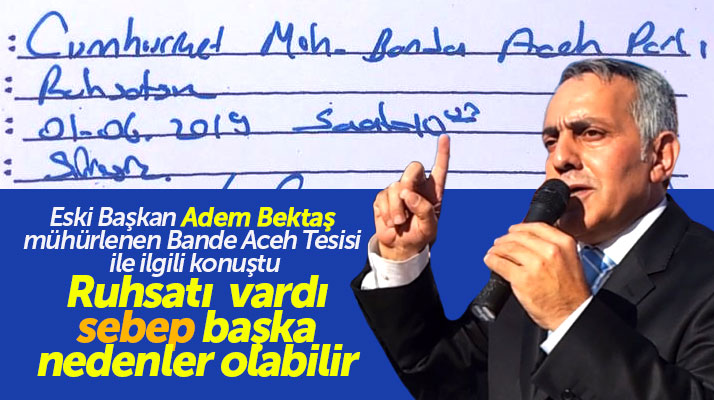 Cumhuriyet Mah. Banda Aceh Parkı
Ruhsatsız
01-06.2019 Saat:10 43
Eski Başkan Adem Bektaş
mühürlenen Bande Aceh Tesisi
ile ilgili konuştu
Ruhsatı vardı
sebep başka
nedenler olabilir